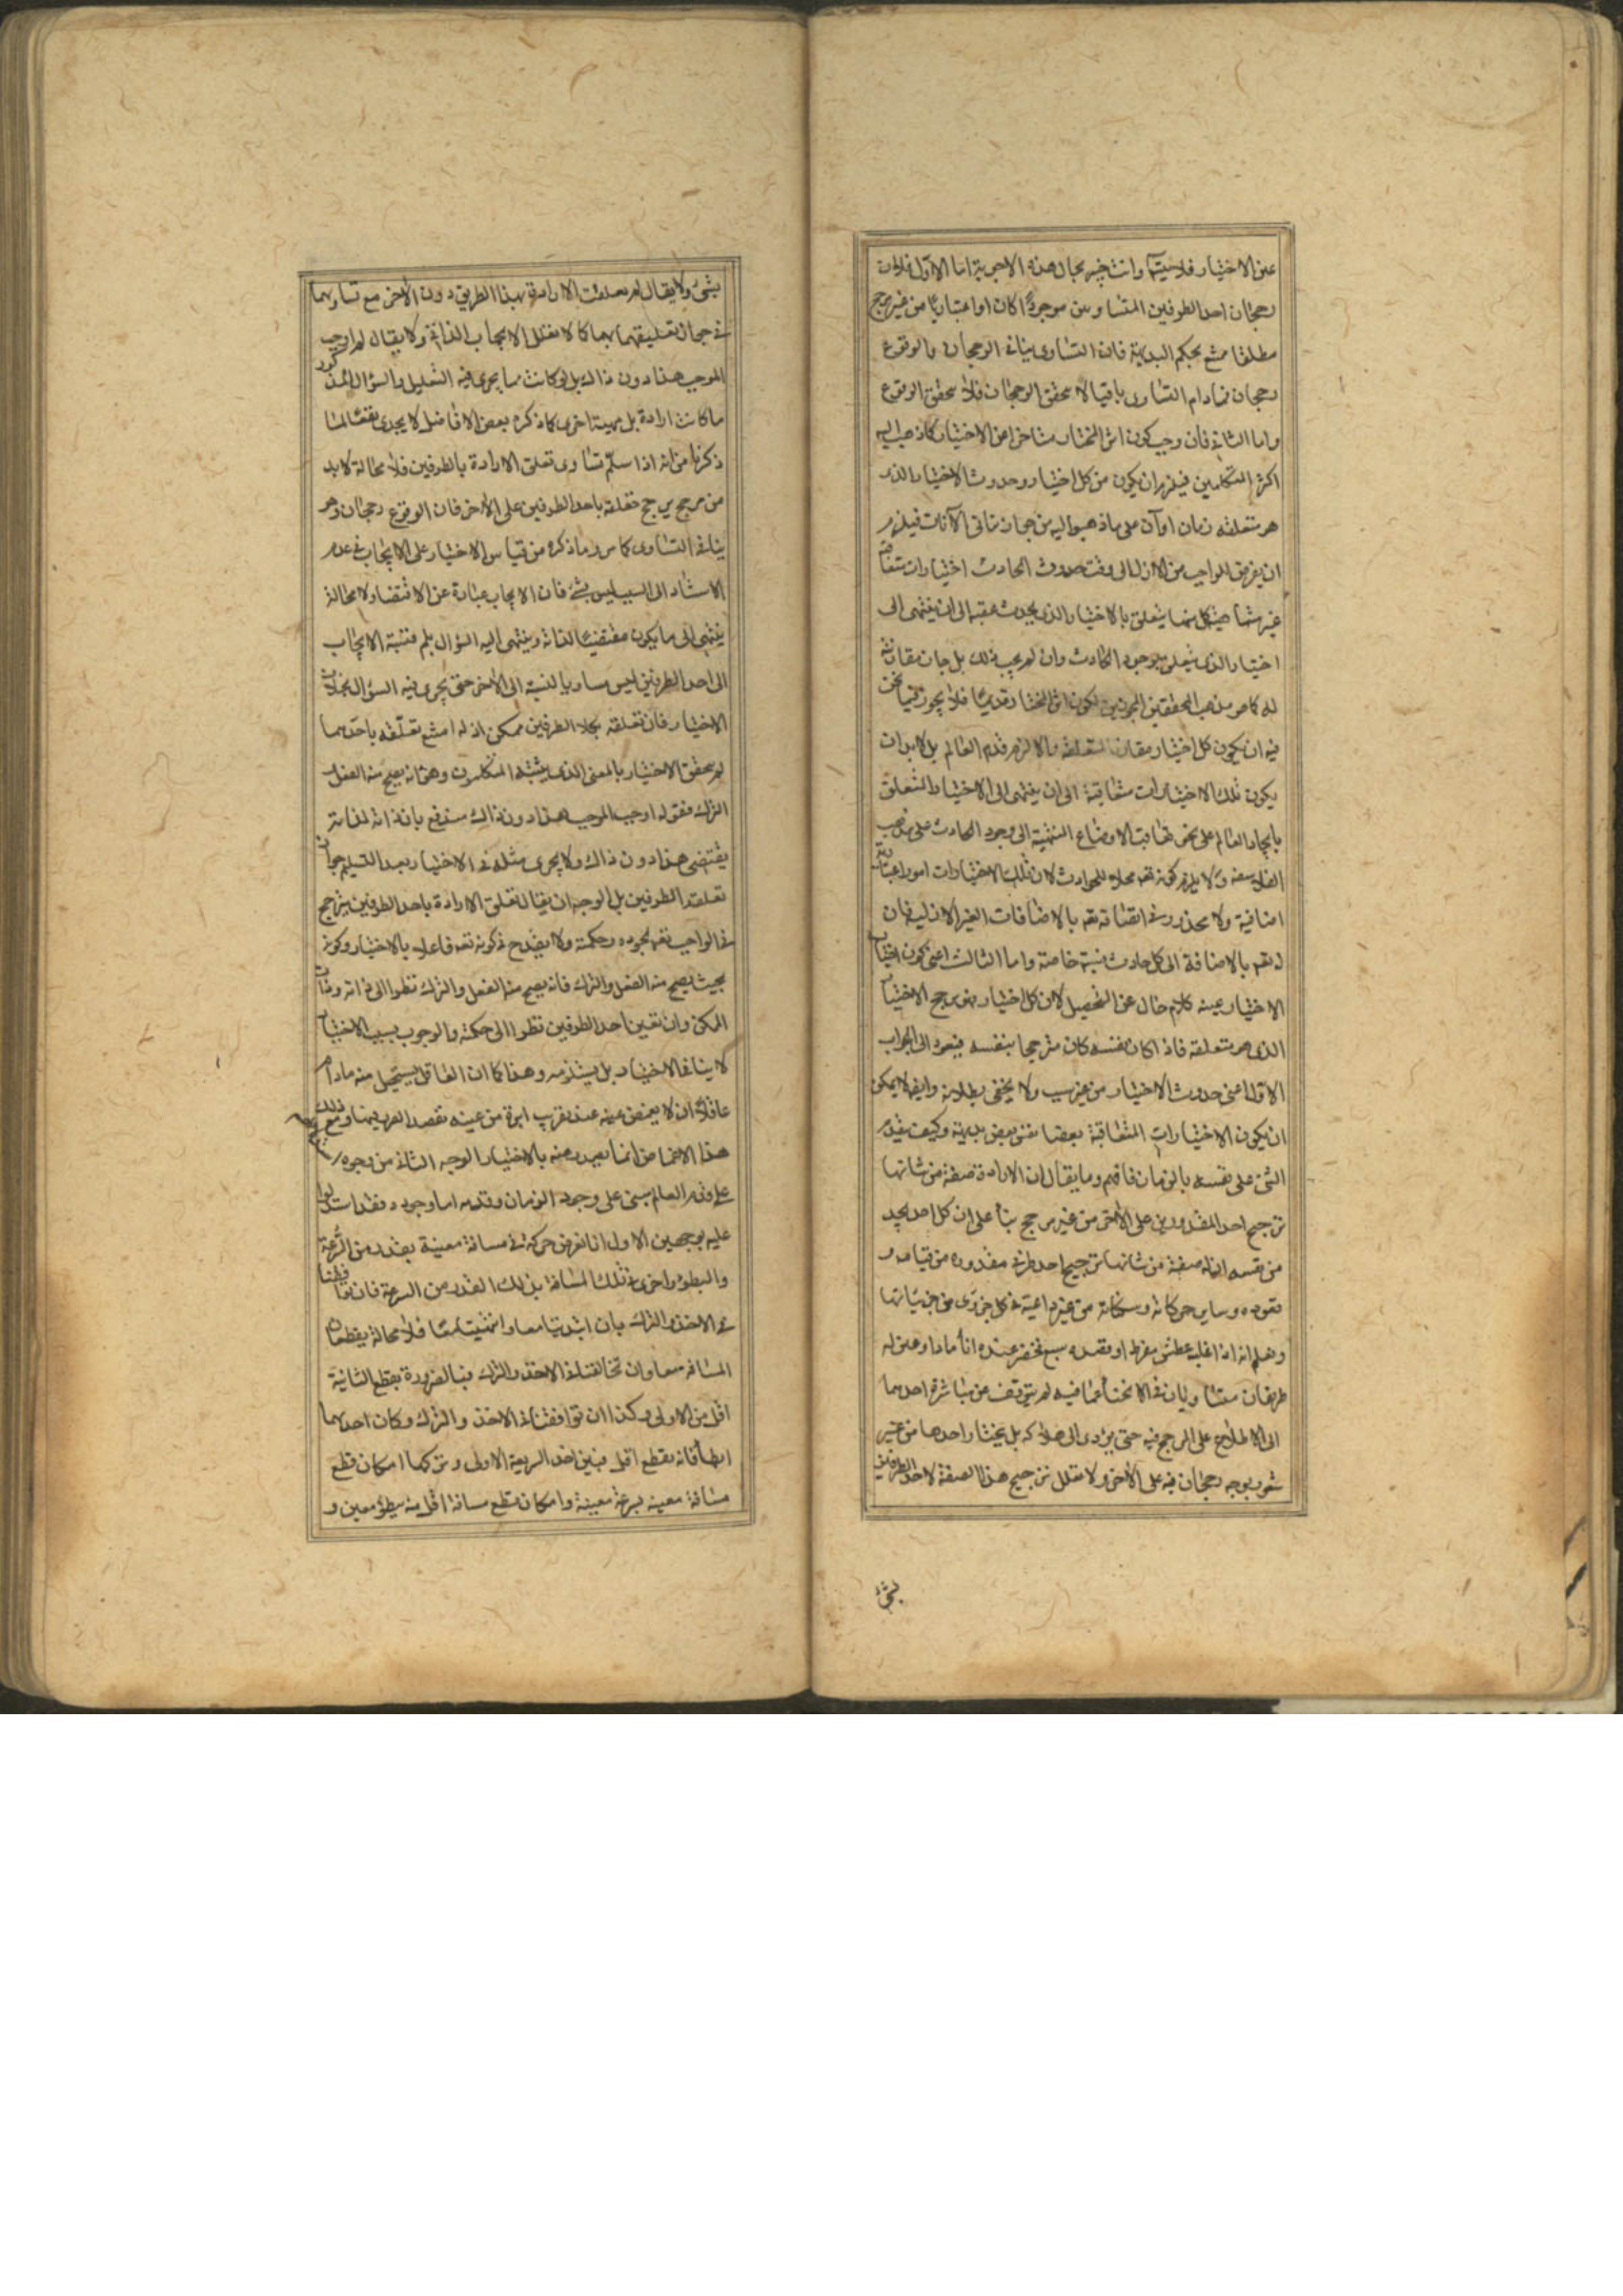 عين الاختيار فلا سيتما وانت خبير بحال هذه الاجوبة اما الاول فلان
رجحان احد الطرفين المتساويين موجودا كان او اعتباريا من غير مرجح
مطلقا ممتنع بحكم البديهة فان التساوى ينافى الرجحان والوقوع
رجحان فما دام التساوى باقيا لا يتحقق الرجحان فلا يتحقق الوقوع
واما الثانى فان وجب كون اثر المختار متاخرا عن الاختيار كما ذهب اليه
اكثر المتكلمين فيلزم ان يكون من كل اختيار وحدوث الاختيار الذى
هو متعلقه زمان او آن على ما ذهبوا اليه من جواز تتالى الآنات فيلزم
ان يفرض الواجب من الازل الى وقت حدوث الحادث اختيارات متعاقبة
غير متناهية كل منها يتعلق بالاختيار الذى يحدث عقبه الى ان ينتهى الى
اختيار الذى يتعلق بوجود الحادث وان لم يجب ذلك بل جاز مقارنته
له كما هو مذهب المحققين المجوزين لكون اثر المختار قديما فلا يجوز فيما نحن
فيه ان يكون كل اختيار مقارن لمتعلقه والا لزم قدم العالم بل لا بد ان
يكون تلك الاختيارات متعاقبة الى ان ينتهى الى الاختيار المتعلق
بايجاد العالم على نحو تعاقب الاوضاع المنتهية الى وجود الحادث على مذهب
الفلاسفه ولا يلزم كونه تعه محلا للحوادث لان تلك الاختيارات امور اعتبارية
اضافية ولا محذور فى اتصافه تعه بالاضافات الغير الازلية فان
له تعه بالاضافة الى كل حادث نسبة خاصة واما الثالث اعنى كون اختيار
الاختيار عينه كلام خال عن التحصيل لان كل اختيار فهو مرجح الاختيار
الذى هو متعلقه فاذا كان نفسه كان مترجحا بنفسه فيعود الى الجواب
الاول اعنى حدوث الاختيار من غير سبب ولا يخفى بطلانه وايضا لا يمكن
ان يكون الاختيارات المتعاقبة بعضها نفس بعض بديهة وكيف يتقدم
الشئ على نفسه بالزمان فافهم وما يقال ان الارادة صفة من شانها
ترجيح احد المقدورين على الآخر من غير مرجح بناء على ان كل احد يجد
من نفسه ان له صفة من شانها ترجيح احد طرفى مقدوره من قيامه و
قعوده وساير حركاته وسكناته من غير داعية فى كل جزوى من جزئياتها
ونعلم انه اذا غلبه عطش مفرط او قصده سبع فحضر عنده اناء ماء او عن له
طريقان متساويان فى الانحاء فيه لم يتوقف عن مباشرة احدهما
الى الاطلاع على المرجح فيه حتى يؤدى الى هلاكه بل يختار احدها من غير
شعور بوجه رجحان فيه على الآخر ولا تعلل ترجيح هذا الصفة لاحد الطرفين
بشئ
بشئ ولا يقال لم تعلقت الارادة بهذا الطريق دون الآخر مع تساويهما
فى جواز تعليقهما بها كما لا تعلل الايجاب الذاتى ولا يقال لم اوجب
الموجب هذا دون ذاك بل لو كانت مما يجرى فيه التعليل والسؤال المذكور
ما كانت ارادة بل مهية اخرى كما ذكره بعض الافاضل لا يجدى نفعا لما
ذكرنا من انه اذا سلم تساوى تعلق الارادة بالطرفين فلا محالة لا بد
من مرجح يرجح تعلقه باحد الطرفين على الآخر فان الوقوع رجحان وهو
ينافى التساوى كما مر وما ذكره من قياس الاختيار على الايجاب فى عدم
الاستناد الى السبب ليس بشئ فان الايجاب عبارة عن الاقتضاء ولا محالة
ينتهى الى ما يكون مقتضيا لذاته وينتهى اليه السؤال بلم فنسبة الايجاب
الى احد الطرفين ليس مساويا بالنسبة الى الآخر حتى يجرى فيه السؤال بخلاف
الاختيار فان تعلقه بكلا الطرفين ممكن اذ لو امتنع تعلقه باحدهما
لم يتحقق الاختيار بالمعنى الذى يثبته المتكلمون وهو انه يصح منه الفعل و
الترك فقوله اوجب الموجب هذا دون ذاك مندفع بان ذاته لذاته
يقتضى هذا دون ذاك ولا يجرى مثله فى الاختيار بعد التسليم جواز
تعلقه الطرفين بل الوجه ان يقال تعلق الارادة باحد الطرفين يترجح
فى الواجب تعه لجوده وحكمته ولا يقدح فى كونه تعه فاعلا بالاختيار وكونه
بحيث يصح منه الفعل والترك فانه يصح منه الفعل والترك نظرا الى ذاته وذات
الممكن وان تعين احد الطرفين نظرا الى حكمته والوجوب بسبب الاختيار
لا ينافى الاختيار بل يستلزمه وهذا كما ان العاقل يستحيل منه ما دام
عاقلا ان لا يغمض عينه عند تقريب ابرة من عينه بقصد الغرز فيها ومع ذلك
هذا الاغماض انما يصدر منه بالاختيار الوجه الثالث من وجوه
على قدم العالم يبنى على وجود الزمان وقدمه اما وجوده فقد استدلوا
عليه بوجهين الاول انا نفرض حركة فى مسافة معينة بقدر من السرعة
والبطوء واخرى فى تلك المسافة بذلك القدر من السرعة فان توافقتا
فى الاخذ والترك بان ابتدءتا معا وانتهيتا معا فلا محالة يقطعان
المسافة معا وان تخالفتا فى الاخذ والترك فبالضرورة يقطع الثانية
اقل من الاولى وكذا ان توافقتا فى الاخذ والترك وكان احدهما
ابطأ فانه يقطع اقل فبين اخذ السريعة الاولى وتركها امكان قطع
مسافة معينه بسرعة معينة وامكان قطع مسافة اقل منه ببطوء معين و